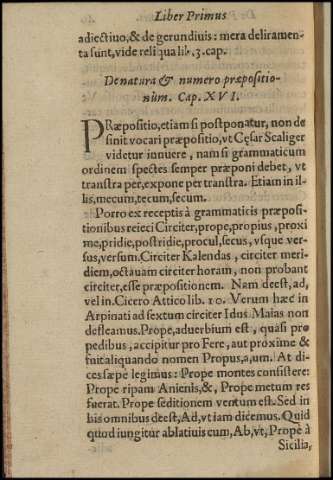 Liber Primus
adiectiuo, & de gerundiuis: mera deliramen-
ta sunt, vide reliqua lib. 3. cap.
De natura & numero præpositio-
nũm. Cap. XVI.
PRæpositio, etiam si postponatur, non de
sinit vocari præpositio, vt Cęsar Scaliger
videtur innuere, nam si grammaticum
ordinem spectes semper præponi debet, vt
transtra per, expone per transtra. Etiam in il-
lis, mecum, tecum, secum.
Porro ex receptis à grammaticis præposi-
tionibus reieci Circiter, prope, propius, proxi
me, pridie, postridie, procul, secus, vsque ver-
sus, versum. Circiter Kalendas, circiter meri-
diem, octauam circiter horam, non probant
circiter, esse præpositionem. Nam deest, ad,
vel in. Cicero Attico lib. 10. Verum hæc in
Arpinati ad sextum circiter Idus Maias non
defleamus. Prope, aduerbium est, quasi pro
pedibus, accipitur pro Fere, aut proxime &
fuit aliquando nomen Propus, a, um. At di-
ces sæpe legimus: Prope montes consistere:
Prope ripam Anienis, &, Prope metum res
fuerat. Prope seditionem ventum est. Sed in
his omnibus deest, Ad, vt iam dicemus. Quid
quod iungitur ablatiuis cum, Ab, vt, Prope à
Sicilia,